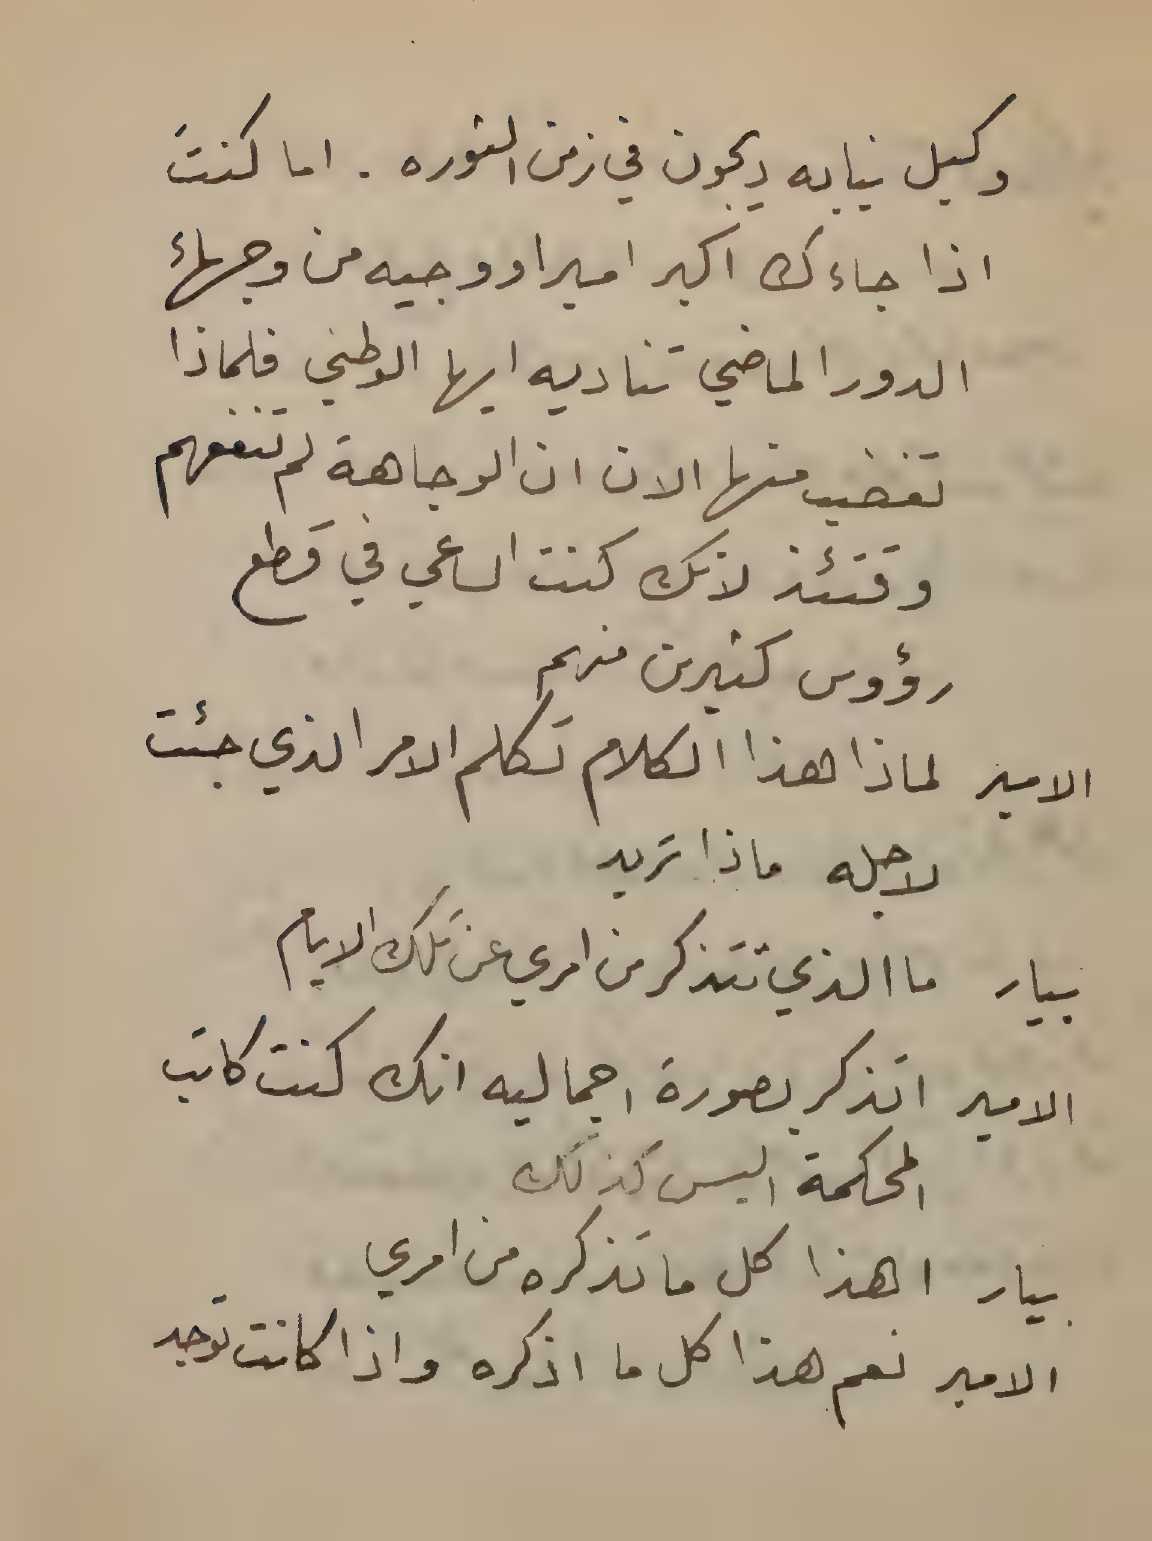 وكيل نيابه ديجون في زمن الثوره . اما كنت
اذا جاءك اكبر امير او وجيه من وجهاء
الدور الماضي تناديه ايها الوطني فلماذا
تغضب منها الان ان الوجاهة لم تنفعهم
وقتئذ لانك كنت الساعي في قطع
رؤوس كثيرين منهم
الامير لماذا هذا الكلام تكلم الامر الذي جئت
لاجله ماذا تريد
بيار ما الذي تتذكر من امري عن تلك الايام
الامير اتذكر بصورة اجماليه انك كنت كاتب
المحكمة اليس كذلك
بيار اهذا كل ما تذكره من امري
الامير نعم هذا كل ما اذكره واذا كانت توجد